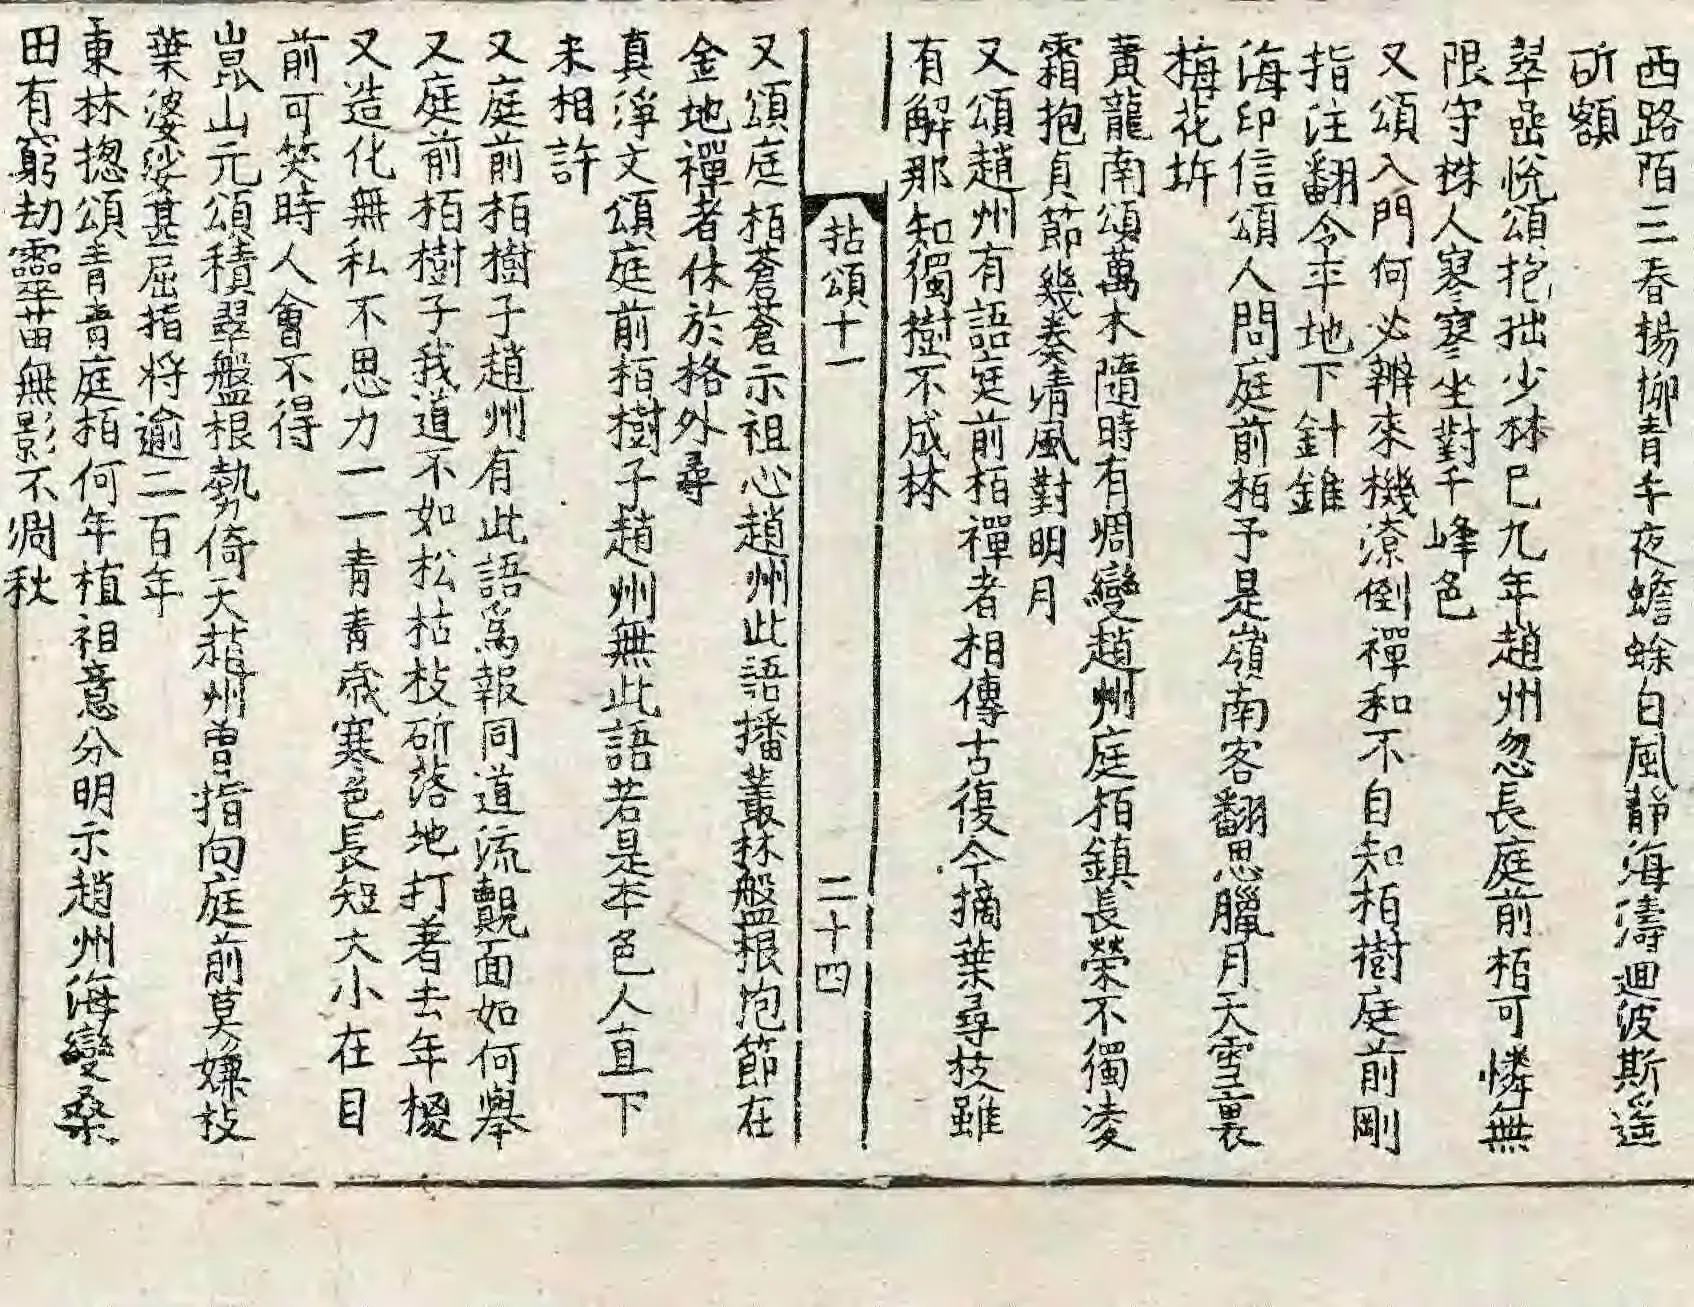 西路陌三春楊柳青午夜蟾蜍白風靜海濤迴波斯遥
斫額
翠嵒悅頌抱拙少林已九年趙州忽長庭前栢可憐無
限守株人寥寥坐對千峰色
又頌入門何必辨來機潦倒禪和不自知栢樹庭前剛
指注翻令平地下針錐
海印信頌人問庭前栢予是嶺南客翻思臘月天雪裏
梅花坼
黃龍南頌萬木隨時有凋變趙州庭栢鎮長榮不獨凌
霜抱貞節幾奏清風對明月
又頌趙州有語庭前栢禪者相傳古復今摘葉尋枝雖
有解那知獨樹不成林
拈頌十一 二十四
又頌庭栢蒼蒼示祖心趙州此語播叢林盤根抱節在
金地禪者休於格外尋
真淨文頌庭前栢樹子趙州無此語若是本色人直下
未相許
又庭前栢樹子趙州有此語爲報同道流覿面如何擧
又庭前栢樹子我道不如松枯枝斫落地打著去年㯶
又造化無私不思力一一青青歲寒色長短大小在目
前可笑時人會不得
崑山元頌積翠盤根勢倚天趙州曾指向庭前莫嫌枝
葉婆娑甚屈指將逾二百年
東林揔頌青青庭栢何年植祖意分明示趙州海變桑
田有窮劫靈苗無影不凋秋